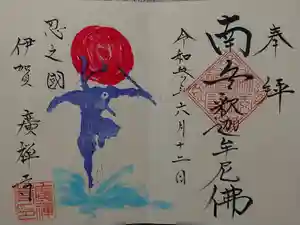 奉拝
南無釈迦牟尼佛
令和
六月十二日
忍之國
伊賀 廣禅寺